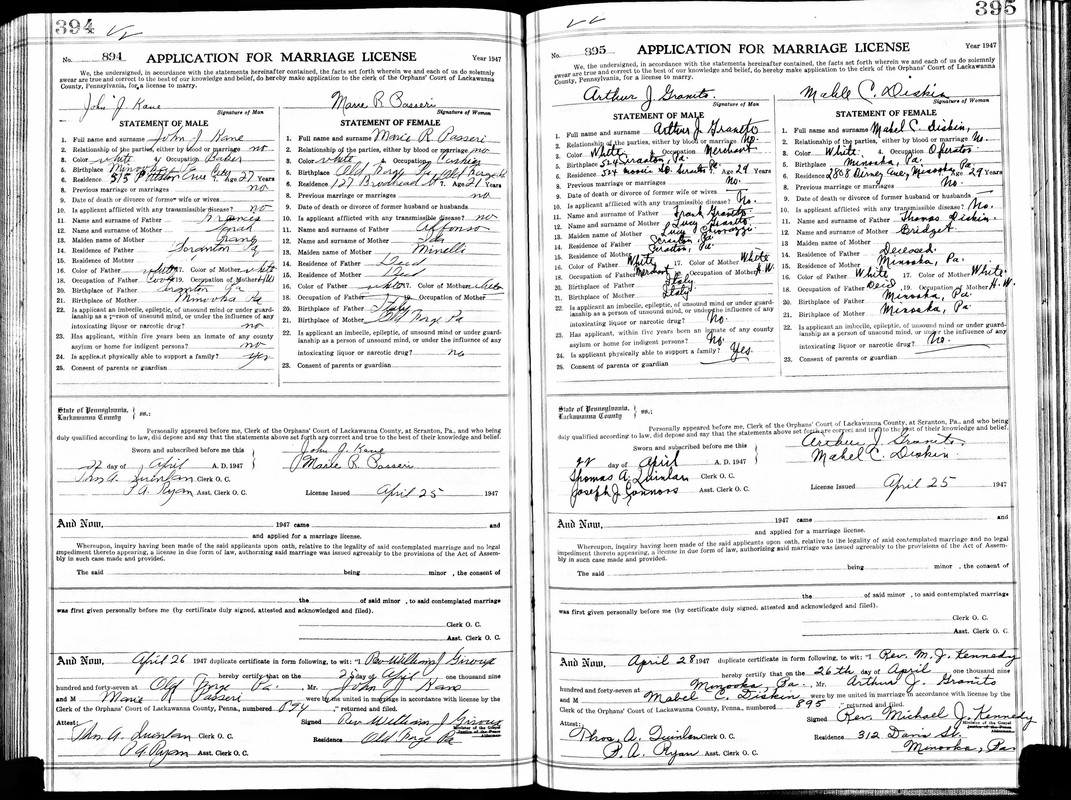 394
No. 894 APPLICATION FOR MARRIAGE LICENSE Year 1947
We, the undersigned, in accordance with the statements hereinafter contained, the facts set forth wherein we and each of us do solemnly
swear are true and correct to the best of our knowledge and belief, do hereby make application to the clerk of the Orphans' Court of Lackawanna
County, Pennsylvania, for a license to marry.
John J. Kane Marie R Passeri
Signature of Man Signature of Woman
STATEMENT OF MALE
1. Full name and surname John J Kane
2. Relationship of the parties, either by blood or marriage no
3. Color white 4. Occupation Baker
5. Birthplace Minooka Pa
6. Residence Ave City 7. Age 27 Years
8. Previous marriages or marriages no
9. Date of death or divorce of former wife or wives
10. Is applicant afflicted with any transmissible disease? no
11. Name and surname of Father Francis
12. Name and surname of Mother Sarah
13. Maiden name of Mother
14. Residence of Father Scranton Pa
15. Residence of Mother
16. Color of Father white 17. Color of Mother white
18. Occupation of Father 19. Occupation of Mother HW
20. Birthplace of Father Scranton Pa
21. Birthplace of Mother Minooka Pa
22. Is applicant an imbecile, epileptic, of unsound mind or under guard-
ianship as a person of unsound mind, or under the influence of any
intoxicating liquor or narcotic drug? no
23. Has applicant, within five years been an inmate of any county
asylum or home for indigent persons? no
24. Is applicant physically able to support a family? yes
25. Consent of parents or guardian
STATEMENT OF FEMALE
1. Full name and surname Marie R Passeri
2. Relationship of the parties, either by blood or marriage no
3. Color white 4. Occupation
5. Birthplace Old Forge Pa
6. Residence 127 Old Forge 7. Age 21 Years
8. Previous marriage or marriages no
9. Date of death or divorce of former husband or husbands
10. Is applicant afflicted with any transmissible disease? no
11. Name and surname of Father Alfonso
12. Name and surname of Mother Ida
13. Maiden name of Mother Minelli
14. Residence of Father Dead
15. Residence of Mother Dead
16. Color of Father white 17. Color of Mother white
18. Occupation of Father 19. Occupation of Mother
20. Birthplace of Father Italy
21. Birthplace of Mother Old Forge Pa
22. Is applicant an imbecile, epileptic, of unsound mind or under guard-
ianship as a person of unsound mind, or under the influence of any
intoxicating liquor or narcotic drug? no
23. Consent of parents or guardian
State of Pennsylvania, } ss.:
Lackawanna County
Personally appeared before me, Clerk of the Orphans' Court of Lackawanna County, at Scranton, Pa., and who being
duly qualified according to law, did depose and say that the statements above set forth are correct and true to the best of their knowledge and belief.
Sworn and subscribed before me this John J. Kane
22 day of April A. D. 1947 Marie R Passeri
Thos A. Quinlan Clerk O. C.
P. A. Ryan Asst. Clerk O. C. License Issued April 25 1947
And Now, 1947 came and
and applied for a marriage license.
Whereupon, inquiry having been made of the said applicants upon oath, relative to the legality of said contemplated marriage and no legal
impediment thereto appearing, a license in due form of law, authorizing said marriage was issued agreeably to the provisions of the Act of Assem-
bly in such case made and provided.
The said being minor , the consent of
the of said minor , to said contemplated marriage
was first given personally before me (by certificate duly signed, attested and acknowledged and filed).
Clerk O. C.
Asst. Clerk O. C.
And Now, April 26 1947 duplicate certificate in form following, to wit: "I Rev William J Giroux
hereby certify that on the day of April one thousand nine
hundred and forty-seven at Old Forge Pa. Mr. John J Kane
and M Marie Passeri were by me united in marriage in accordance with license by the
Clerk of the Orphans' Court of Lackawanna County, Penna., numbered 894 " returned and filed.
Attest: Signed Rev William J Giroux
Thos. A. Quinlan Clerk O. C. Residence Old Forge Pa
P. A. Ryan Asst. Clerk O. C.
395
No. 895 APPLICATION FOR MARRIAGE LICENSE Year 1947
We, the undersigned, in accordance with the statements hereinafter contained, the facts set forth wherein we and each of us do solemnly
swear are true and correct to the best of our knowledge and belief, do hereby make application to the clerk of the Orphans' Court of Lackawanna
County, Pennsylvania, for a license to marry.
Arthur J. Granito. Mabel C. Diskin
Signature of Man Signature of Woman
STATEMENT OF MALE
1. Full name and surname Arthur J. Granito
2. Relationship of the parties, either by blood or marriage No.
3. Color White 4. Occupation Merchant
5. Birthplace Scranton, Pa.
6. Residence 524 Moosic St. Scranton Pa. 7. Age 29 Years
8. Previous marriage or marriages No.
9. Date of death or divorce of former wife or wives
10. Is applicant afflicted with any transmissible disease? No.
11. Name and surname of Father Frank Granito
12. Name and surname of Mother Lucy Granito
13. Maiden name of Mother Lucy
14. Residence of Father Scranton, Pa.
15. Residence of Mother Scranton, Pa.
16. Color of Father White 17. Color of Mother White
18. Occupation of Father Merchant 19. Occupation of Mother H.W.
20. Birthplace of Father Italy
21. Birthplace of Mother Italy
22. Is applicant an imbecile, epileptic, of unsound mind or under guard-
ianship as a person of unsound mind, or under the influence of any
intoxicating liquor or narcotic drug? No.
23. Has applicant, within five years been an inmate of any county
asylum or home for indigent persons? No.
24. Is applicant physically able to support a family? Yes.
25. Consent of parents or guardian
STATEMENT OF FEMALE
1. Full name and surname Mabel C. Diskin,
2. Relationship of the parties, either by blood or marriage No.
3. Color White. 4. Occupation Operator
5. Birthplace Minooka, Pa.
6. Residence 2808 Birney Ave, Minooka, Pa. 7. Age 29 Years
8. Previous marriage or marriages No.
9. Date of death or divorce of former husband or husbands
10. Is applicant afflicted with any transmissible disease? No.
11. Name and surname of Father Thomas Diskin.
12. Name and surname of Mother Bridget.
13. Maiden name of Mother
14. Residence of Father Deceased.
15. Residence of Mother Minooka, Pa.
16. Color of Father White 17. Color of Mother White.
18. Occupation of Father Dec'd. 19. Occupation of Mother H.W.
20. Birthplace of Father Minooka, Pa.
21. Birthplace of Mother Minooka, Pa
22. Is applicant an imbecile, epileptic, of unsound mind or under guard-
ianship as a person of unsound mind, or under the influence of any
intoxicating liquor or narcotic drug? No.
23. Consent of parents or guardian
State of Pennsylvania, } ss.:
Lackawanna County
Personally appeared before me, Clerk of the Orphans' Court of Lackawanna County, at Scranton, Pa., and who being
duly qualified according to law, did depose and say that the statements above set forth are correct and true to the best of their knowledge and belief.
Sworn and subscribed before me this Arthur J. Granito
22 day of April A. D. 1947 Mabel C. Diskin.
Thomas A. Quinlan Clerk O. C.
Joseph J. Connors Asst. Clerk O. C. License Issued April 25 1947
And Now, 1947 came and
and applied for a marriage license.
Whereupon, inquiry having been made of the said applicants upon oath, relative to the legality of said contemplated marriage and no legal
impediment thereto appearing, a license in due form of law, authorizing said marriage was issued agreeably to the provisions of the Act of Assem-
bly in such case made and provided.
The said being minor , the consent of
the of said minor , to said contemplated marriage
was first given personally before me (by certificate duly signed, attested and acknowledged and filed).
Clerk O. C.
Asst. Clerk O. C.
And Now, April 28 1947 duplicate certificate in form following, to wit: "I Rev. M. J. Kennedy
hereby certify that on the 26th day of April one thousand nine
hundred and forty-seven at Minooka, Pa., Mr. Arthur J. Granito
and M Mabel C. Diskin were by me united in marriage in accordance with license by the
Clerk of the Orphans' Court of Lackawanna County, Penna., numbered 895 " returned and filed.
Attest: Signed Rev. Michael J. Kennedy
Minister of the Gospel
Justice of the Peace
Alderman
Thos. A. Quinlan Clerk O. C. Residence 312 Davis St.
P. A. Ryan Asst. Clerk O. C. Minooka, Pa.